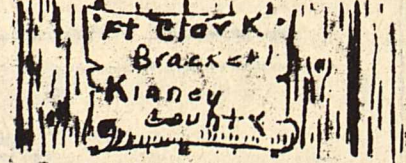 "Ft Clark"
Brackett
Kinney
County